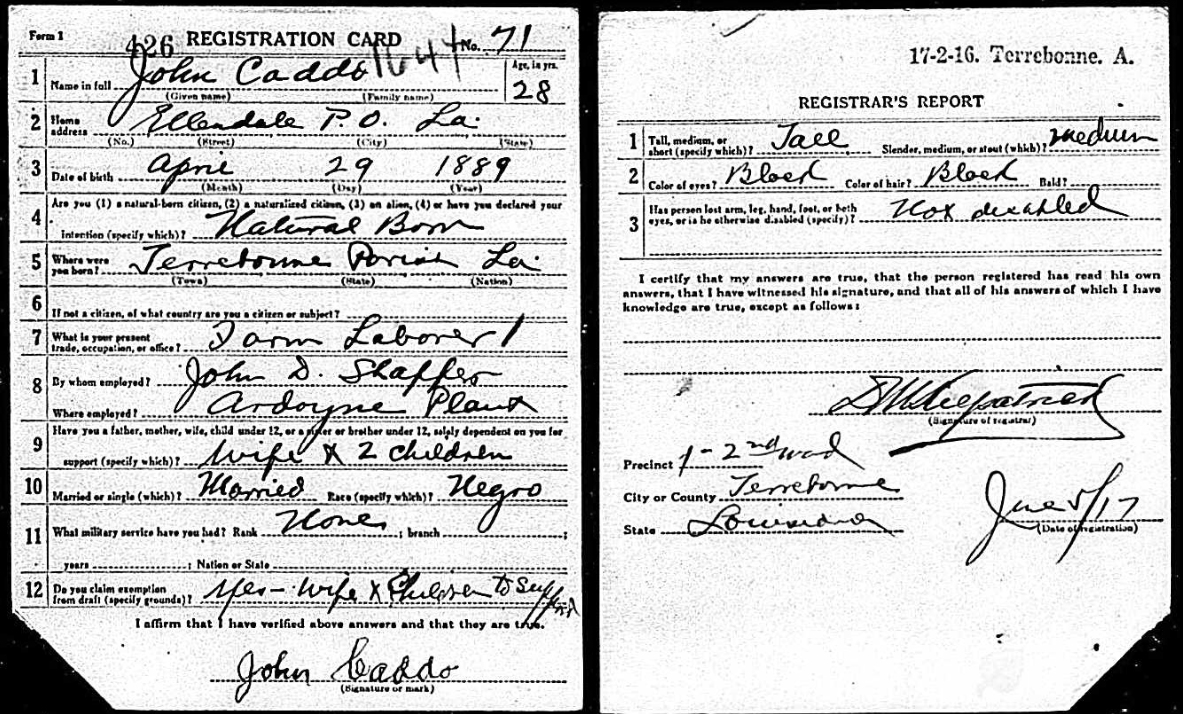 Form 1
426 REGISTRATION CARD No. 71
1 Name in full John Caddo Age, in yrs. 28
(Given name) (Family name)
2 Home address Ellendale P.O. La.
(No.) (Street) (City) (State)
3 Date of birth April 29 1889
(Month) (Day) (Year)
Are you (1) a natural-born citizen, (2) a naturalized citizen, (3) an alien, (4) or have you declared your
4 intention (specify which)? Natural Born
5 Where were you born? Terrebonne Parish La.
(Town) (State) (Nation)
6 If not a citizen, of what country are you a citizen or subject?
7 What is your present trade, occupation, or office? Farm Laborer 1
8 By whom employed? John D. Shaffer
Where employed? Ardoyne Plant
9 Have you a father, mother, wife, child under 12, or a sister or brother under 12, solely dependent on you for
support (specify which)? Wife & 2 children
10 Married or single (which)? Married Race (specify which)? Negro
11 What military service have you had? Rank None ; branch ;
years ; Nation or State
12 Do you claim exemption from draft (specify grounds)? Yes - Wife & Children to Support
I affirm that I have verified above answers and that they are true.
John Caddo
(Signature or mark)
17-2-16. Terrebonne. A.
REGISTRAR'S REPORT
1 Tall, medium, or short (specify which)? Tall Slender, medium, or stout (which)? medium
2 Color of eyes? Black Color of hair? Black Bald?
3 Has person lost arm, leg, hand, foot, or both eyes, or is he otherwise disabled (specify)? Not disabled
I certify that my answers are true, that the person registered has read his own
answers, that I have witnessed his signature, and that all of his answers of which I have
knowledge are true, except as follows:
(Signature of registrar)
Precinct 1 - 2nd ward
City or County Terrebonne
State Louisiana
June 5/17
(Date of registration)